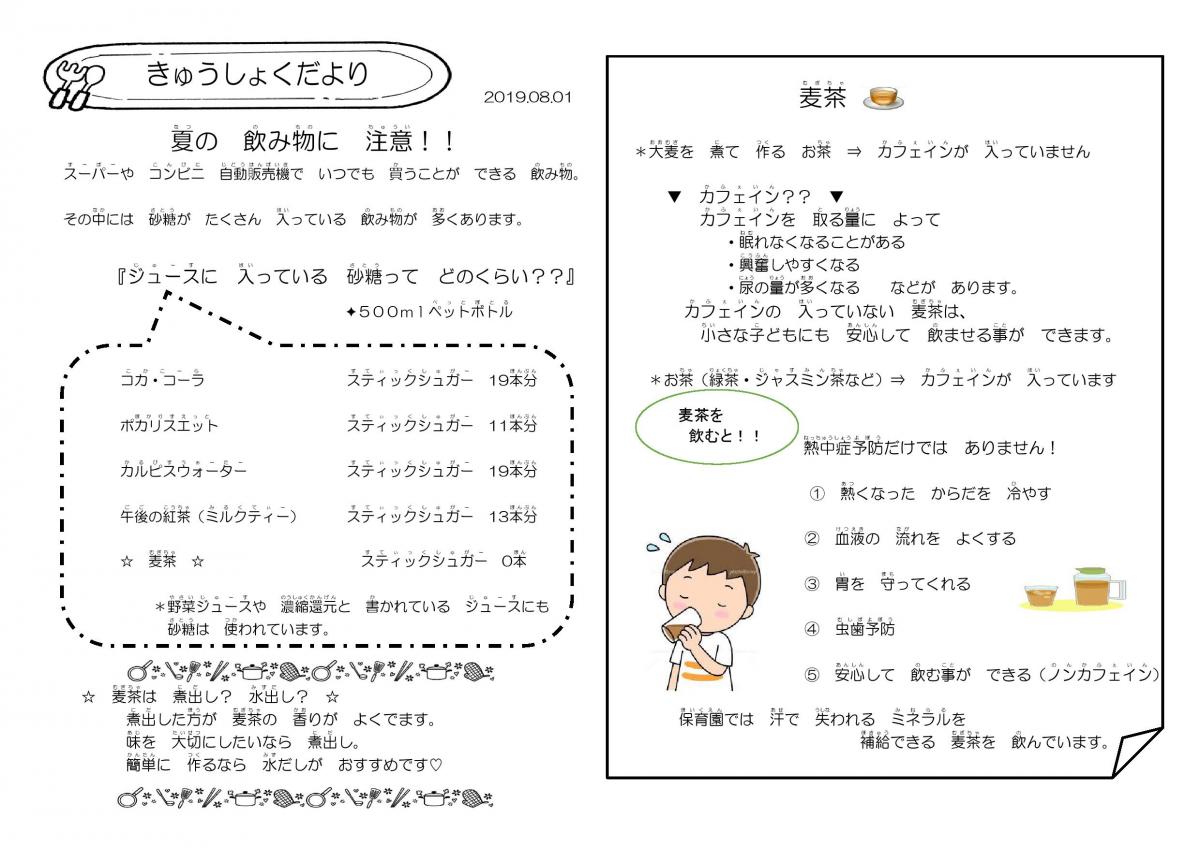 きゅうしょくだより
2019.08.01
夏の 飲み物に 注意！！
スーパーや コンビニ 自動販売機で いつでも 買うことが できる 飲み物。
その中には 砂糖が たくさん 入っている 飲み物が 多くあります。
『ジュースに 入っている 砂糖って どのくらい？？』
✦５００ｍｌペットボトル
コカ・コーラ スティックシュガー 19本分
ポカリスエット スティックシュガー 11本分
カルピスウォーター スティックシュガー 19本分
午後の紅茶（ミルクティー） スティックシュガー 13本分
☆ 麦茶 ☆ スティックシュガー 0本
＊野菜ジュースや 濃縮還元と 書かれている ジュースにも
砂糖は 使われています。
☆ 麦茶は 煮出し？ 水出し？ ☆
煮出した方が 麦茶の 香りが よくでます。
味を 大切にしたいなら 煮出し。
簡単に 作るなら 水だしが おすすめです♡
麦茶
＊大麦を 煮て 作る お茶 ⇒ カフェインが 入っていません
▼ カフェイン？？ ▼
カフェインを 取る量に よって
・眠れなくなることがある
・興奮しやすくなる
・尿の量が多くなる などが あります。
カフェインの 入っていない 麦茶は、
小さな子どもにも 安心して 飲ませる事が できます。
＊お茶（緑茶・ジャスミン茶など）⇒ カフェインが 入っています
麦茶を
飲むと！！
熱中症予防だけでは ありません！
① 熱くなった からだを 冷やす
② 血液の 流れを よくする
③ 胃を 守ってくれる
④ 虫歯予防
⑤ 安心して 飲む事が できる（ノンカフェイン）
保育園では 汗で 失われる ミネラルを
補給できる 麦茶を 飲んでいます。